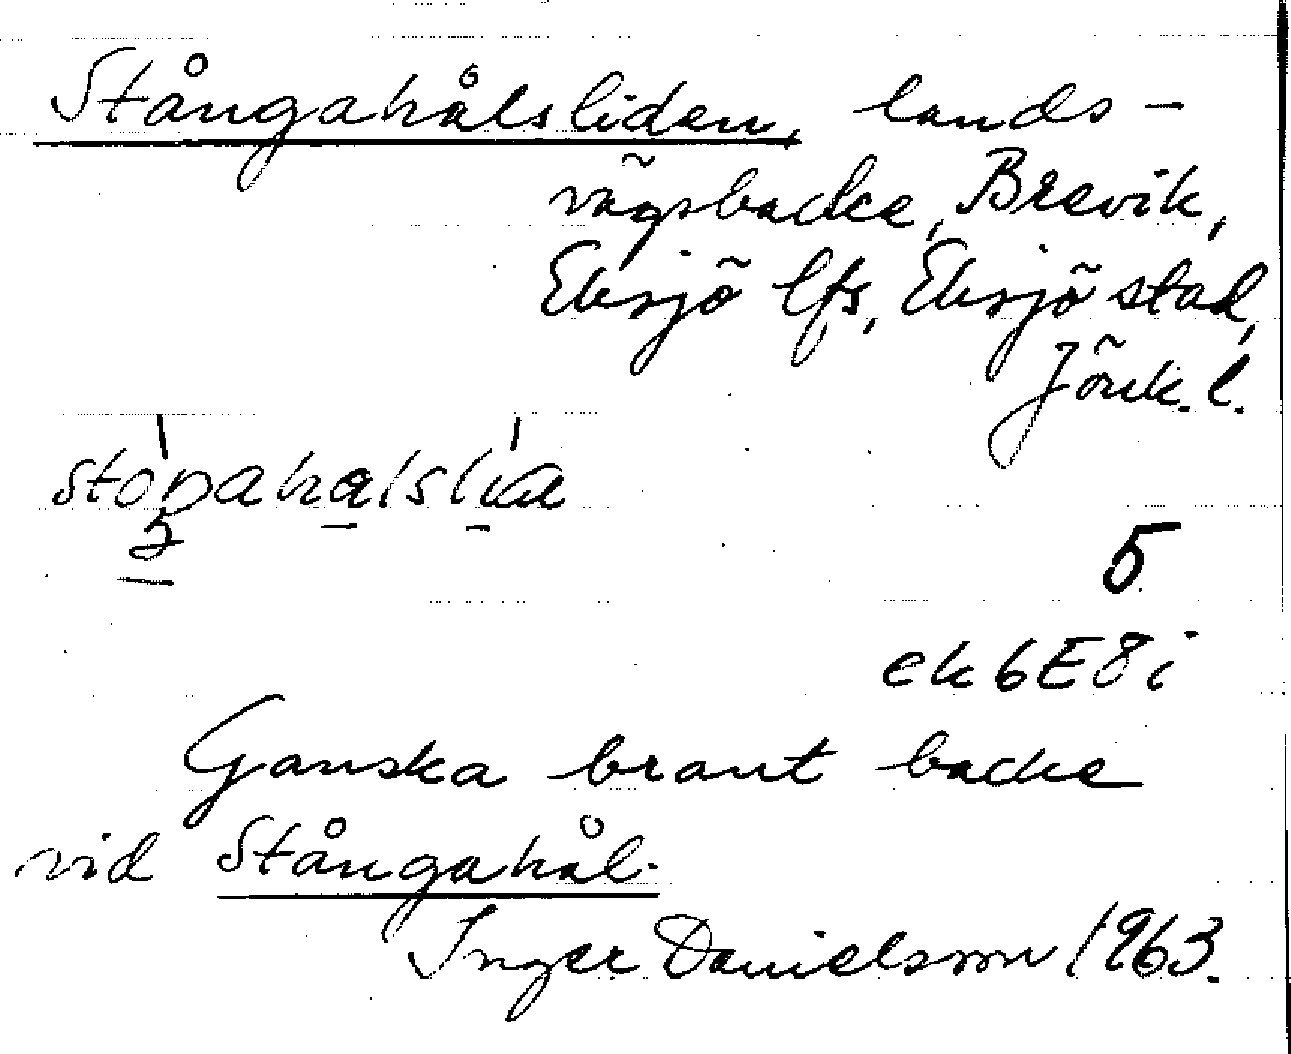 Stångahålsliden, lands-
vägsbacke, Brevik,
Eksjö lfs, Eksjö stad,
Jönk. l.
5
ek 6E8i
Ganska brant backe
vid Stångahål.
Inger Danielsson 1963.